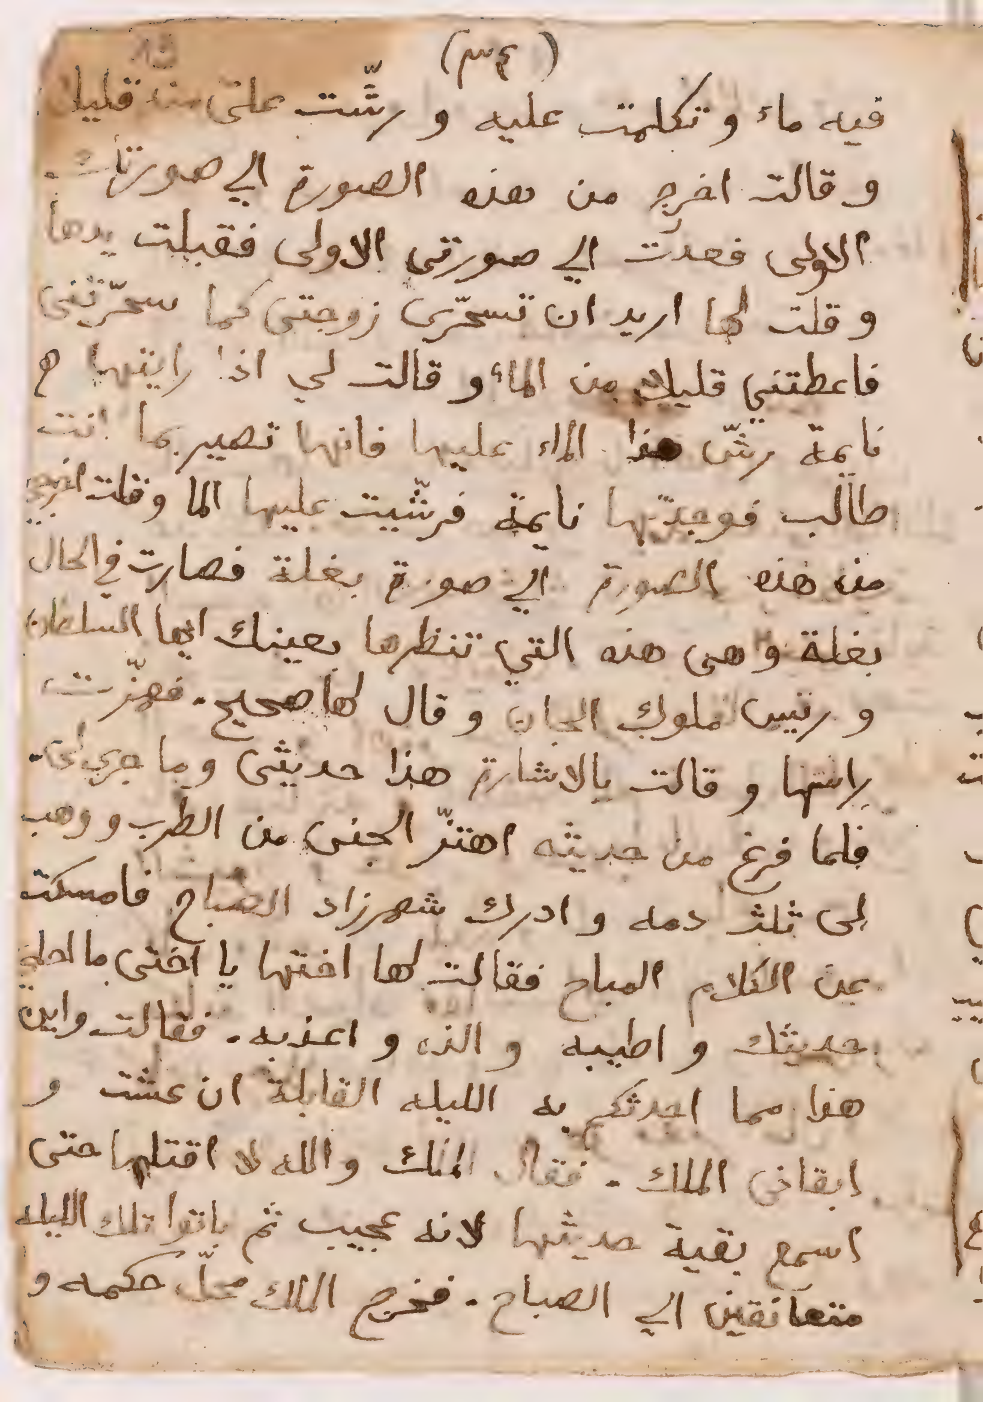 (٣٤)
فيه ماء وتكلمت عليه ورشّت علي منه قليلا
وقالت اخرج من هذه الصورة الي صورتك
الاولى فعدت الي صورتي الاولى فقبلت يدها
وقلت لها اريد ان تسحّري زوجتي كما سحرّتني
فاعطتني قليلا من الماء وقالت لي اذا رايتها
نايمة رشّ هذا الماء عليها فانها تصير بما انت
طالب فوجدتها نايمة فرشّيت عليها الما وقلت اخرجي
من هذه الصورة الي صورة بغلة فصارت في الحال
بغلة وهي هذه التي تنظرها بعينك ايها السلطان
ورئيس ملوك الجان وقال لها صحيح. فهزّت
راسها وقالت بالاشارة هذا حديثي وما جري لي.
فلما فرغ من حديثه اهتزّ الجني من الطرب ووهب
لي ثلث دمه وادرك شهرزاد الصباح فامسكت
عن الكلام المباح فقالت لها اختها يا اختي ما احلي
حديثك واطيبه والذه واعذبه. فقالت واين
هذا مما احدثكم به الليله القابلة ان عشت و
ابقاني الملك. فقال الملك والله لا اقتلها حتى
اسمع بقية حديثها لانه عجيب ثم باتوا تلك الليله
متعانقين الي الصباح. فخرج الملك محلّ حكمه و